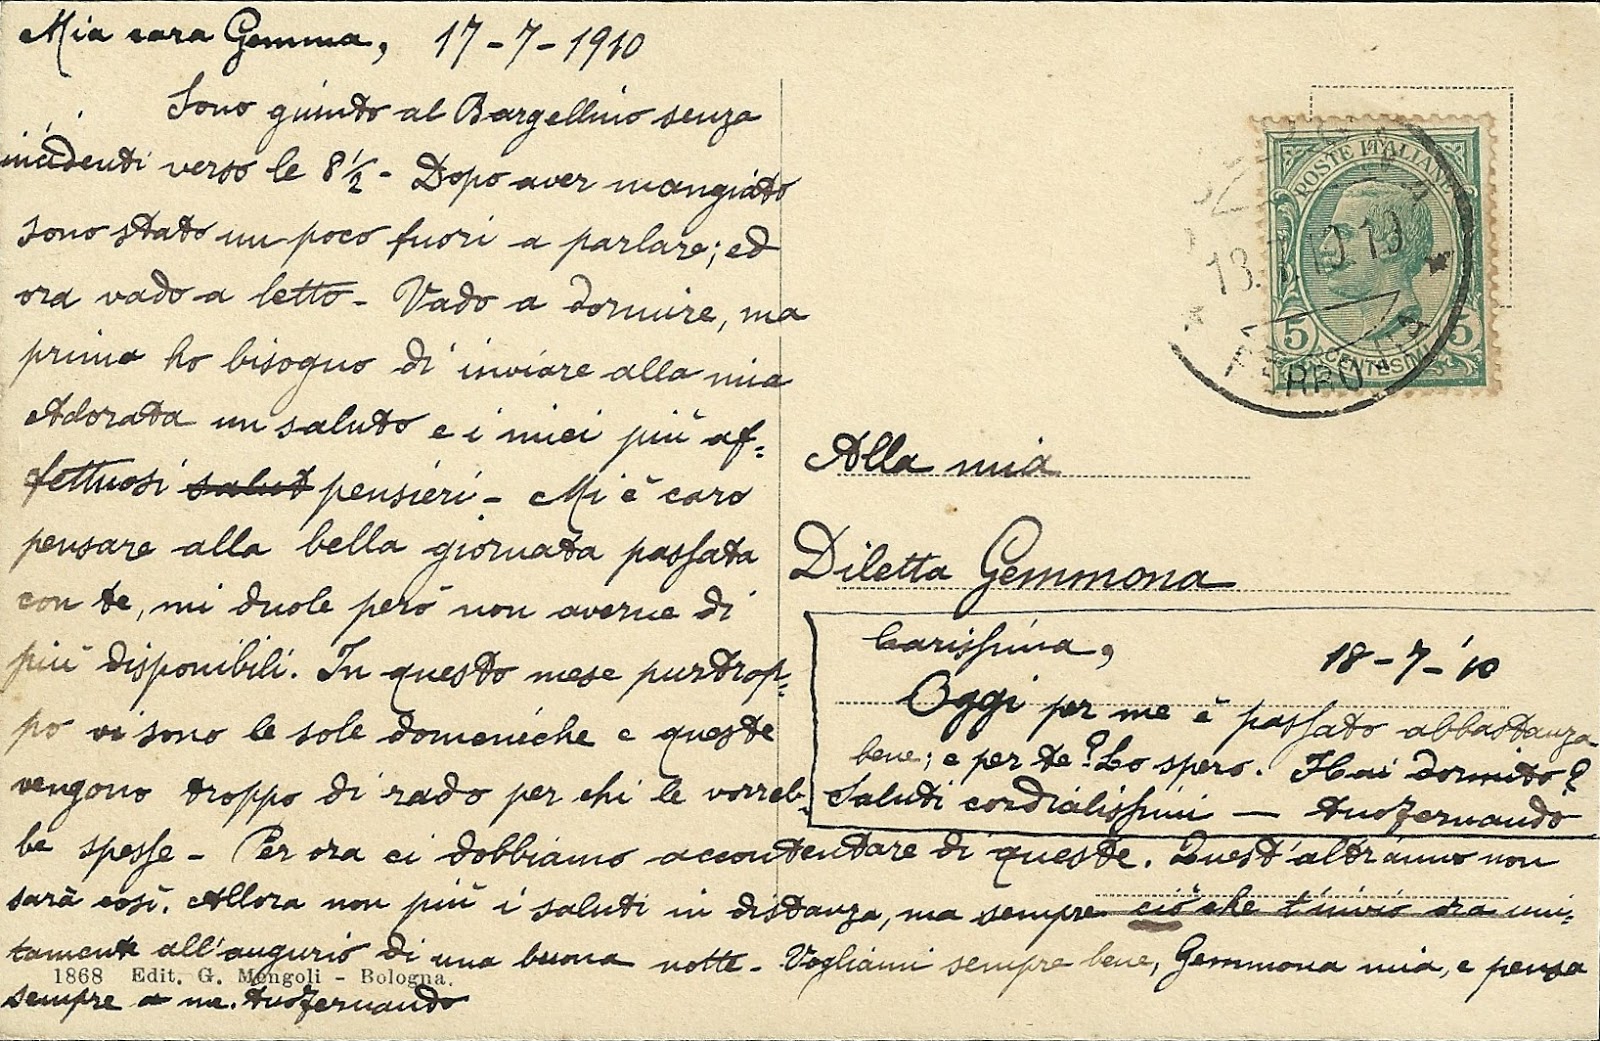 Mia cara Gemma, 17-7-1910
Sono giunto al Bargellino senza
incidenti verso le 8 1/2 - Dopo aver mangiato
sono stato un poco fuori a parlare; ed
ora vado a letto - Vado a dormire, ma
prima ho bisogno di inviare alla mia
Adorata un saluto e i miei più af=
fettuosi salut pensieri - Mi è caro
pensare alla bella giornata passata
con te, mi duole però non averne di
più disponibili. In questo mese purtrop=
po vi sono le sole domeniche e queste
vengono troppo di rado per chi le vorreb-
be spesse - Per ora ci dobbiamo accontentare di queste. Quest'altr'anno non
sarà così. Allora non più i saluti in distanza, ma sempre ciò che t'invio ora uni=
tamente all'augurio di una buona notte - Vogliami sempre bene, Gemmona mia, e pensa
sempre a me. tuo Fernando
1868 Edit. G. Mengoli - Bologna.
POSTE ITALIANE
18.7.10 19
5 CENTESIMI 5
FERROVIA
Alla mia
Diletta Gemmona
Carissima, 18-7-'10
Oggi per me è passato abbastanza
bene; e per te? Lo spero. Hai dormito?
Saluti cordialissimi — tuo Fernando